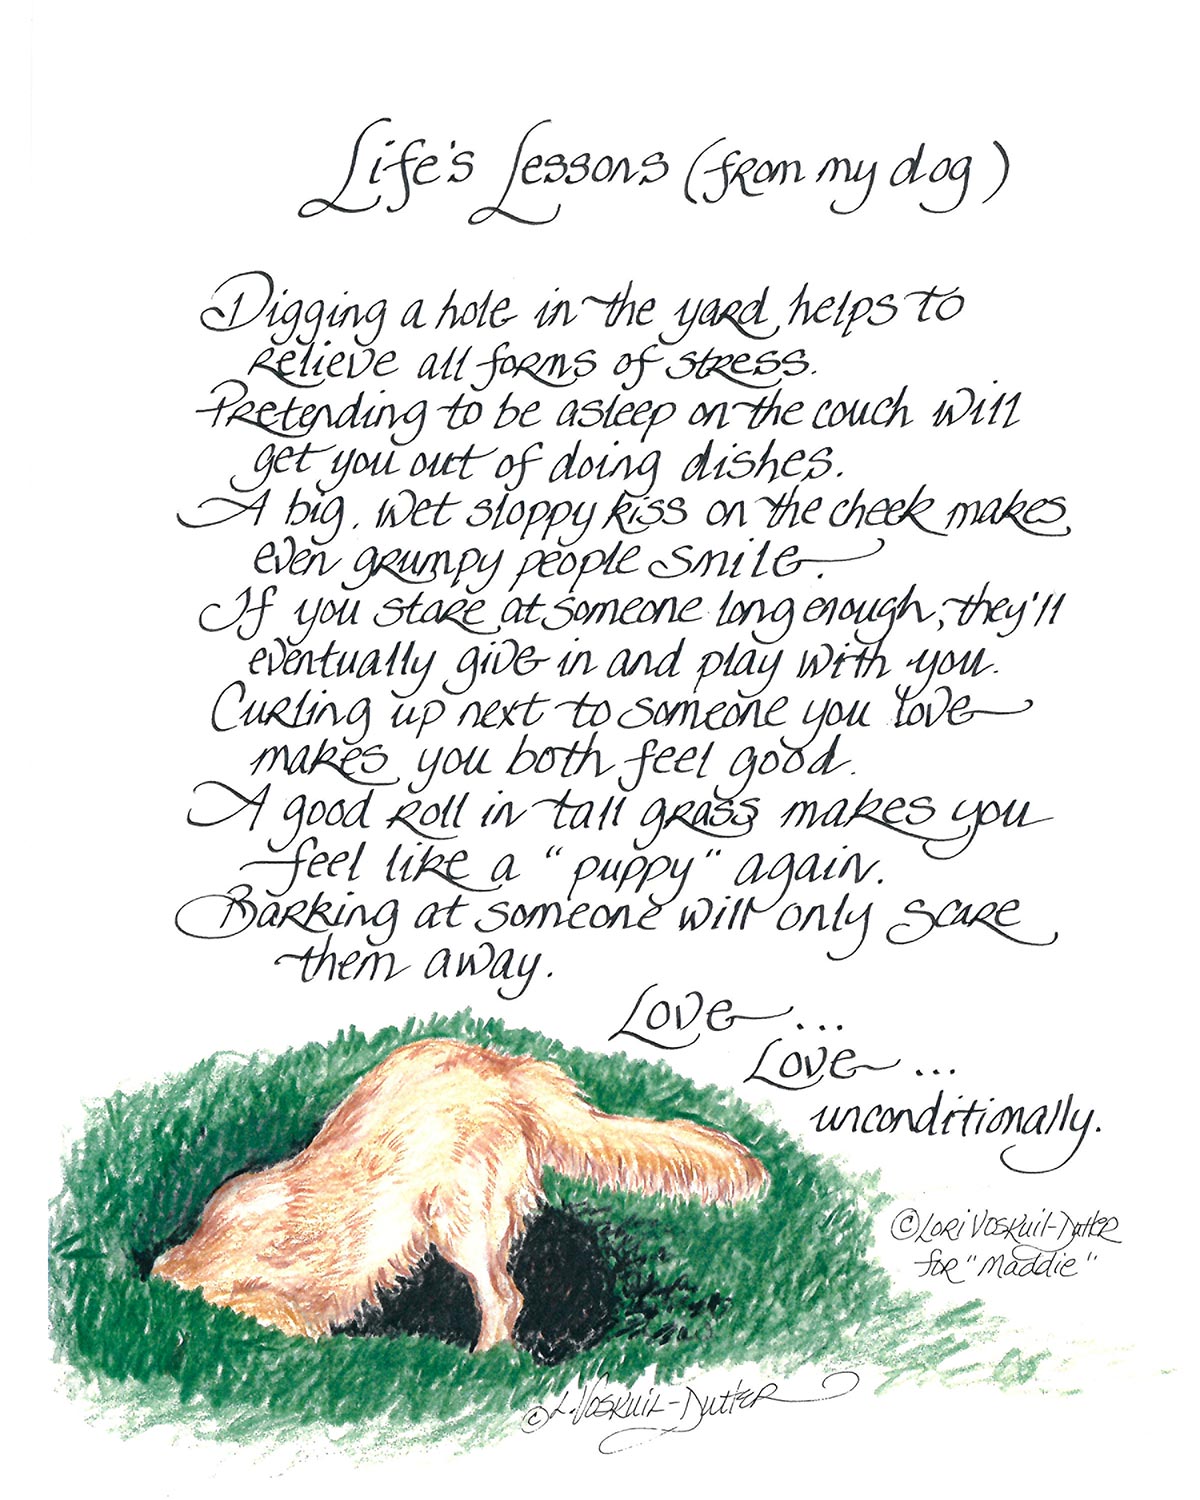 Life's Lessons (from my dog)
Digging a hole in the yard helps to
relieve all forms of stress.
Pretending to be asleep on the couch will
get you out of doing dishes.
A big, wet sloppy kiss on the cheek makes
even grumpy people smile.
If you stare at someone long enough, they'll
eventually give in and play with you.
Curling up next to someone you love
makes you both feel good.
A good roll in tall grass makes you
feel like a "puppy" again.
Barking at someone will only scare
them away.
Love...
Love...
unconditionally.
© Lori Voskuil-Dutter
for "Maddie"
© L. Voskuil-Dutter